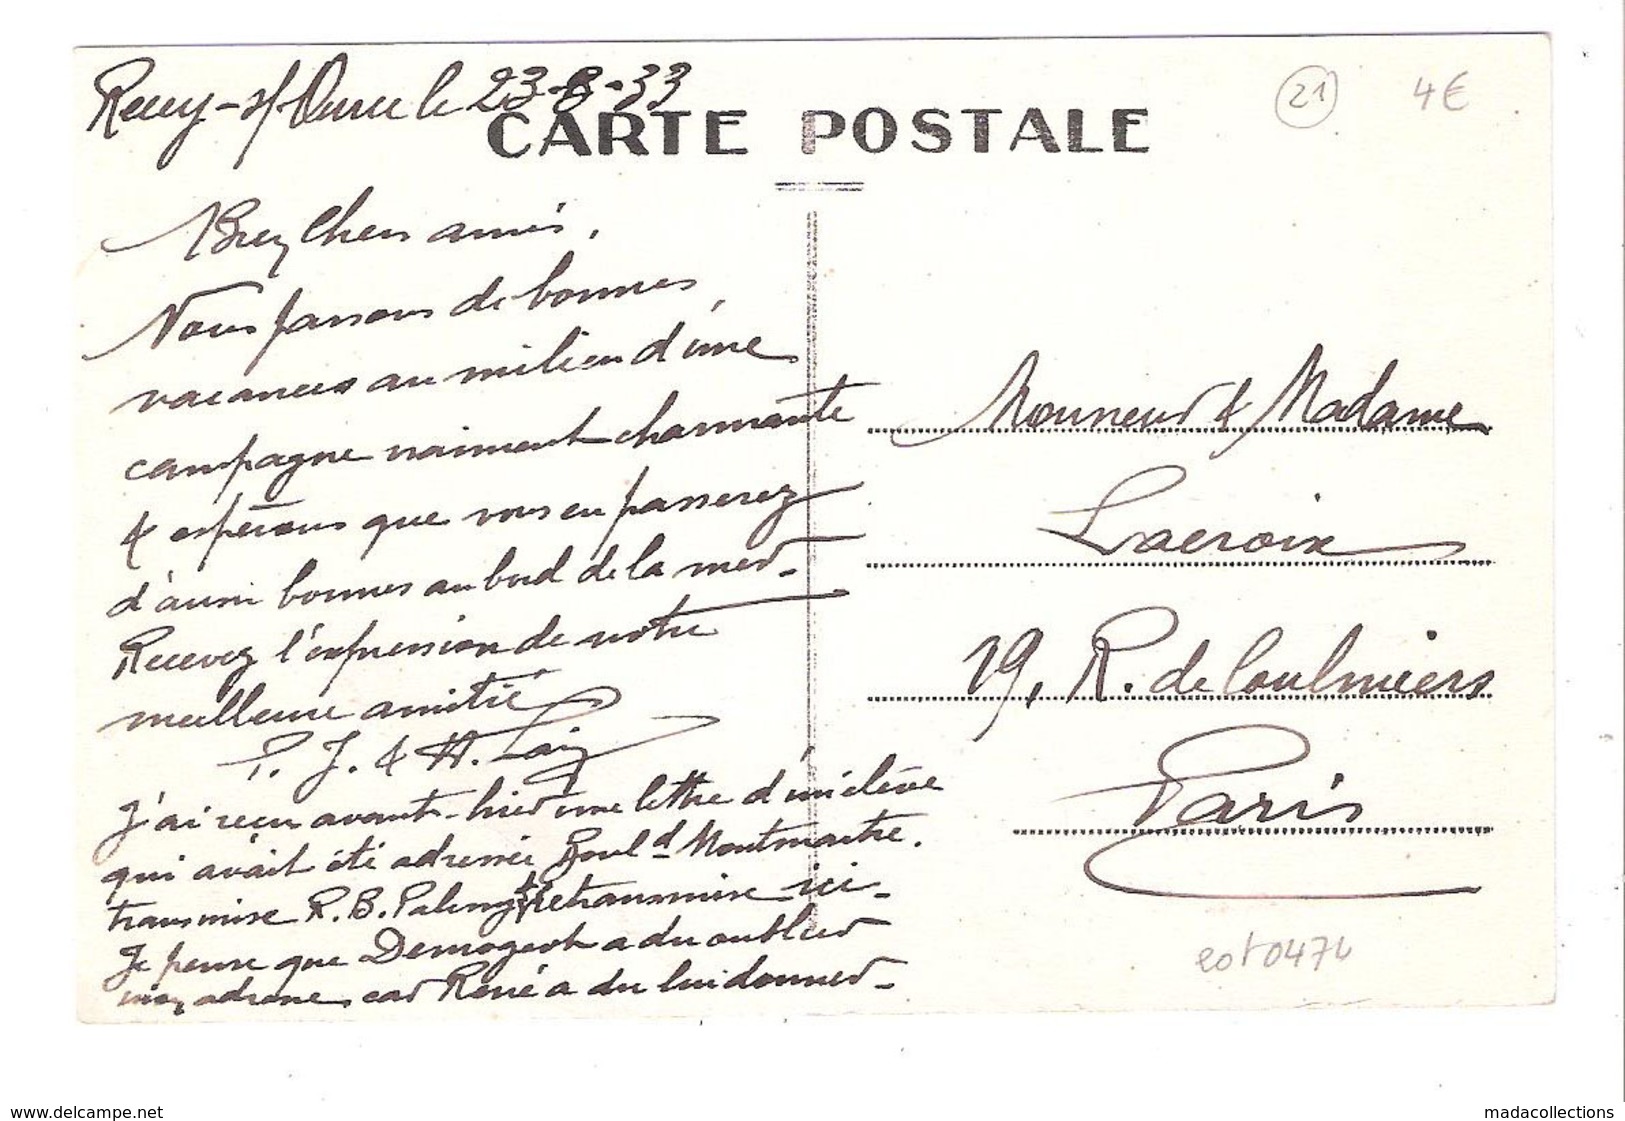 Recey-s/-Ource le 23-8-33
CARTE POSTALE
21
4€
Bien Chers amis,
Nous passons de bonnes
vacances au milieu d'une
campagne vraiment charmante
& espérons que vous en passerez
d'aussi bonnes au bord de la mer.
Recevez l'expression de notre
meilleure amitié
P. J. & H.
J'ai reçu avant-hier une lettre d'un élève
qui avait été adressée Boul.d Montmartre.
transmise R. B. Palissy & retransmise ici.
Je pense que Demogeot a du oublier
mon adresse car René a du lui donner.
Monsieur & Madame
Lacroix
19, R. de Coulmiers
Paris
www.delcampe.net
madacollections